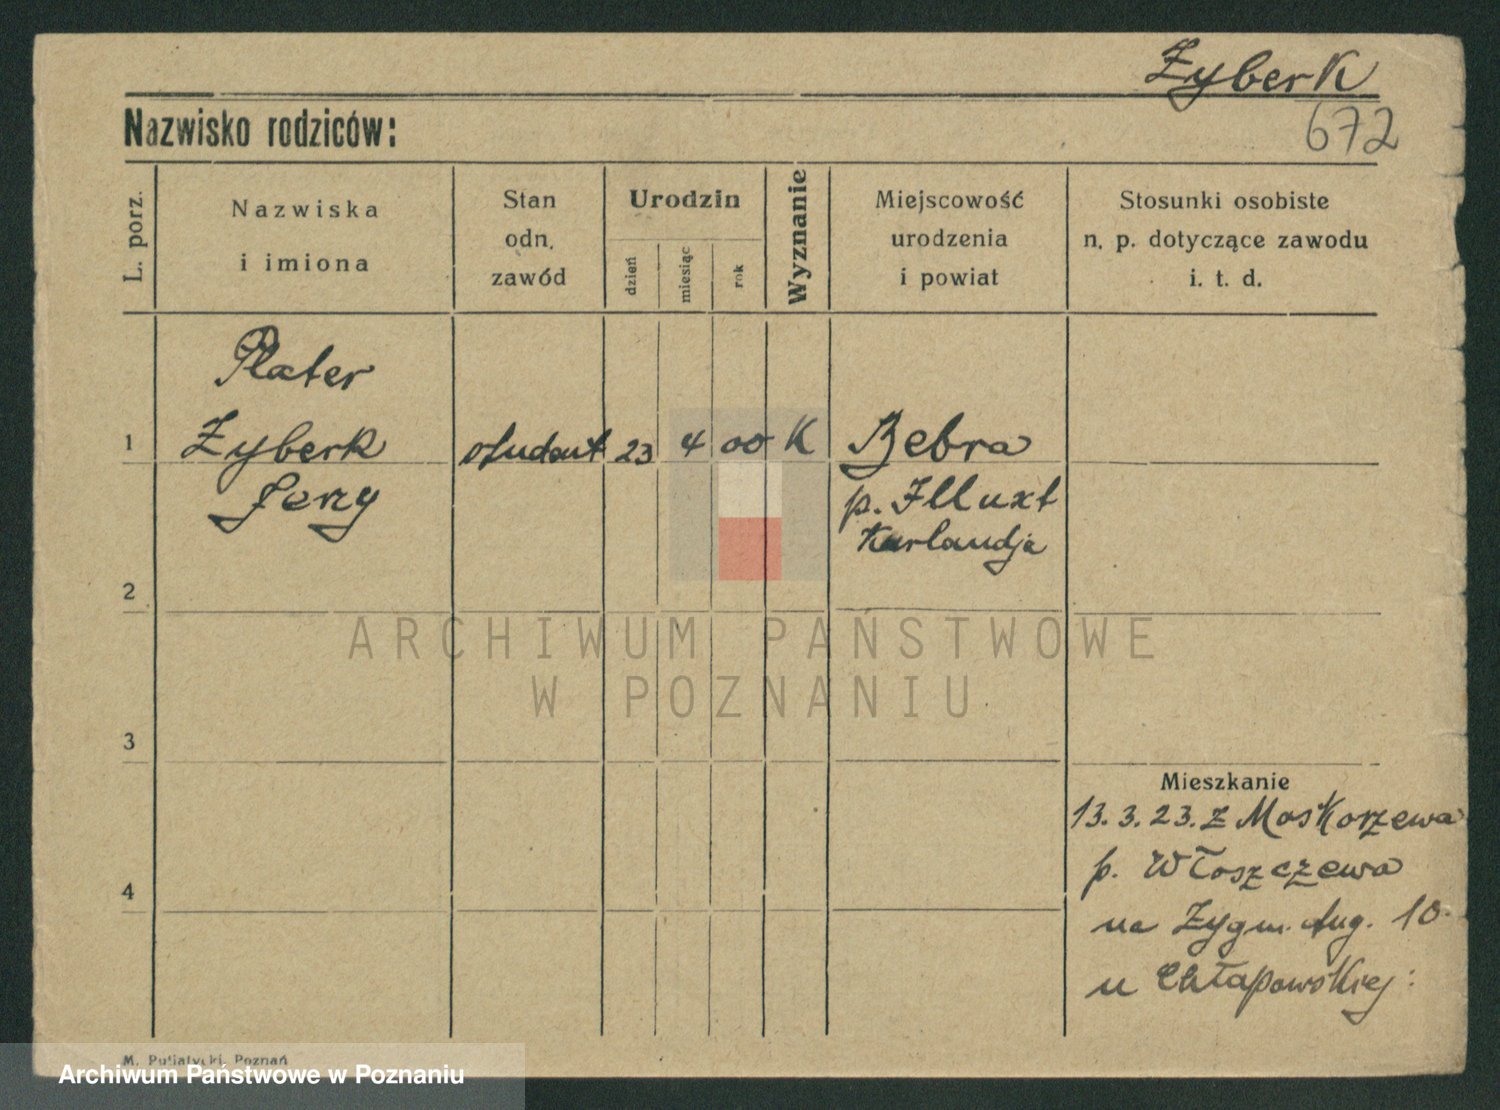 Zyberk
672
Nazwisko rodziców:
L. porz.
Nazwiska
i imiona
Stan
odn.
zawód
Urodzin
dzień
miesiąc
rok
Wyznanie
Miejscowość
urodzenia
i powiat
Stosunki osobiste
n. p. dotyczące zawodu
i. t. d.
Plater
1 Zyberk student 23 4 00 K Bebra
Jerzy p. Illuxt
Kurlandja
2
ARCHIWUM PAŃSTWOWE
W POZNANIU
3
Mieszkanie
13. 3. 23. z Moskorzewa
p. Włoszczewa
4
na Zygm. Aug. 10.
u Chłapowskiej
M. Putiatycki, Poznań
Archiwum Państwowe w Poznaniu